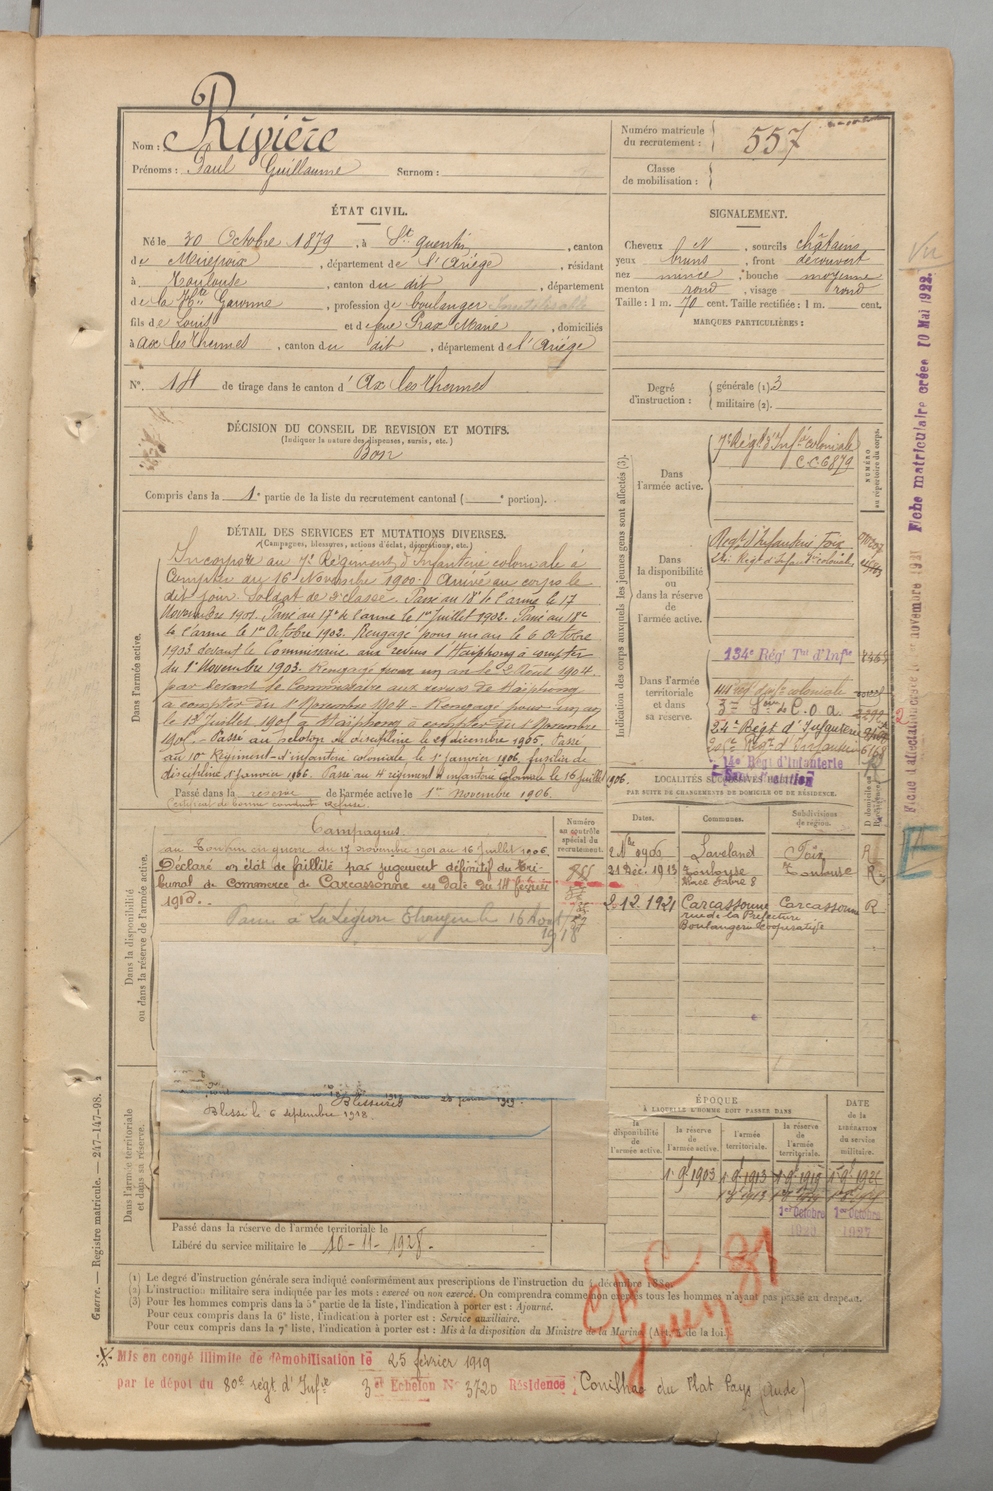 Nom : Rivière
Prénoms : Paul Guillaume Surnom :
Numéro matricule du recrutement : 557
Classe de mobilisation :
ÉTAT CIVIL.
Né le 30 Octobre 1879, à St Quentin, canton
de Mirepoix, département de l'Ariège, résidant
à Toulouse, canton du dit, département
de la Hte Garonne, profession de boulanger
fils de Louis et de feue Prax Marie, domiciliés
à Ax les Thermes, canton du dit, département de l'Ariège
N° 14 de tirage dans le canton d'Ax les Thermes
SIGNALEMENT.
Cheveux N, sourcils châtains,
yeux bruns, front découvert
nez mince, bouche moyenne
menton rond, visage rond
Taille : 1 m. 70 cent. Taille rectifiée : 1 m. cent.
MARQUES PARTICULIÈRES :
Degré d'instruction : générale (1). 3
militaire (2).
DÉCISION DU CONSEIL DE REVISION ET MOTIFS.
(Indiquer la nature des dispenses, sursis, etc.)
Bon
Compris dans la 1e partie de la liste du recrutement cantonal ( e portion).
DÉTAIL DES SERVICES ET MUTATIONS DIVERSES.
(Campagnes, blessures, actions d'éclat, décorations, etc.)
Dans l'armée active.
Incorporé au 7e Régiment d'Infanterie coloniale à
Compter du 16 Novembre 1900. Arrivé au corps le
dit jour Soldat de 2e classe. Passé au 18e de l'arme le 17
Novembre 1901. Passé au 17e de l'arme le 1er Juillet 1902. Passé au 18e
de l'arme le 1er Octobre 1902. Rengagé pour un an le 6 Octobre
1903 devant le Commissaire aux revues d'Haïphong à compter
du 1er Novembre 1903. Rengagé pour un an le 2 Août 1904
par devant le Commissaire aux revues de Haïphong
à compter du 1er Novembre 1904 - Rengagé pour un an
le 13 Juillet 1905 à Haïphong à compter du 1er Novembre
1905. - Passé au peloton de discipline le 29 décembre 1905. Passé
au 10e Régiment d'infanterie coloniale le 1er janvier 1906, fusilier de
discipline 1er janvier 1906. Passé au 4e régiment d'infanterie coloniale le 16 juillet 1906.
Passé dans la réserve de l'armée active le 1er Novembre 1906.
Certificat de bonne conduite Refusé.
Indication des corps auxquels les jeunes gens sont affectés (3).
NUMÉRO au répertoire du corps.
Dans l'armée active.
7e Régt d'Infie coloniale
C.C. 6879
Dans la disponibilité ou dans la réserve de l'armée active.
Régt d'Infanterie Foix
24e Régt d'Infant. coloniale
Dans l'armée territoriale et dans sa réserve.
134e Rég Tal d'Infie
3me Son de C.O.a
24e Régt d'Infanterie
14e Régt d'Infanterie
LOCALITÉS SUCCESSIVES HABITÉES
PAR SUITE DE CHANGEMENTS DE DOMICILE OU DE RÉSIDENCE.
Dates. Communes. Subdivisions de région.
2 9bre 1906 Lavelanet Foix R
21 Déc. 1913 Toulouse Toulouse R
2.12.1921 Carcassonne Carcassonne R
rue de la Préfecture
Boulangerie Coopérative
Dans la disponibilité ou dans la réserve de l'armée active.
Numéro au contrôle spécial du recrutement.
Campagnes
au Tonkin en guerre du 17 novembre 1901 au 16 Juillet 1906.
Déclaré en état de faillite par jugement définitif du Tri-
bunal de Commerce de Carcassonne en date du 18 février
1910.
Passé à la Légion Etrangère le
1918
Dans l'armée territoriale et dans sa réserve.
Blessures
Blessé le 6 septembre 1918
Passé dans la réserve de l'armée territoriale le
Libéré du service militaire le 10-11-1928.
ÉPOQUE
À LAQUELLE L'HOMME DOIT PASSER DANS
la disponibilité de l'armée active. la réserve de l'armée active. l'armée territoriale. la réserve de l'armée territoriale.
DATE de la LIBÉRATION du service militaire.
1er 9bre 1903 1er 9bre 1913
1er Octobre 1er Octobre
(1) Le degré d'instruction générale sera indiqué conformément aux prescriptions de l'instruction du 4 décembre 1889.
(2) L'instruction militaire sera indiquée par les mots : exercé ou non exercé. On comprendra comme non exercés tous les hommes n'ayant pas passé au drapeau.
(3) Pour les hommes compris dans la 5e partie de la liste, l'indication à porter est : Ajourné.
Pour ceux compris dans la 6e liste, l'indication à porter est : Service auxiliaire.
Pour ceux compris dans la 7e liste, l'indication à porter est : Mis à la disposition du Ministre de la Marine (Art. 4 de la loi.)
Mis en congé illimité de démobilisation le 25 février 1919
par le dépôt du 80e régt d'Infie 3e Echelon N° 3720 Résidence : Conilhac du Plat Pays (Aude)
Guerre. — Registre matricule. — 247-147-98.
Fiche matriculaire créée 10 Mai 1922.